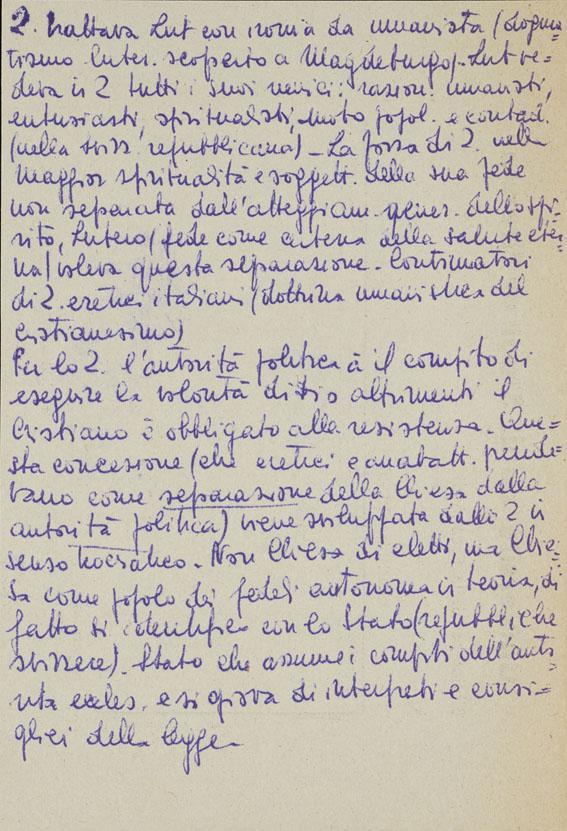 2. trattava Lut con ironia da umanista (dogma
tismo luter. scoperto a Magdeburgo). Lut ve=
deva in 2 tutti i suoi nemici: razion. umanisti,
entusiasti, spiritualisti, moto popol. e contad.
(nella svizz. repubblicana) – La forza di 2. nella
maggior spiritualità e soggett. della sua fede
non separata dall'atteggiam. gener. dello spi=
rito, Lutero (fede come certezza della salute eter=
na) voleva questa separazione. Continuatori
di 2. eretici italiani (dottrina umanistica del
cristianesimo)
Per lo 2. l'autorità politica à il compito di
eseguire la volontà di Dio altrimenti il
Cristiano è obbligato alla resistenza. Que=
sta concezione (che eretici e anabatt. prende=
vano come separazione della Chiesa dalla
autorità politica) viene sviluppata dallo 2 in
senso teocratico. Non Chiesa di eletti, ma Chie=
sa come popolo dei fedeli autonoma in teoria, di
fatto si identifica con lo Stato (repubbliche
svizzere). Stato che assume i compiti dell'auto=
rità eccles. e si giova di interpreti e consi=
glieri della legge